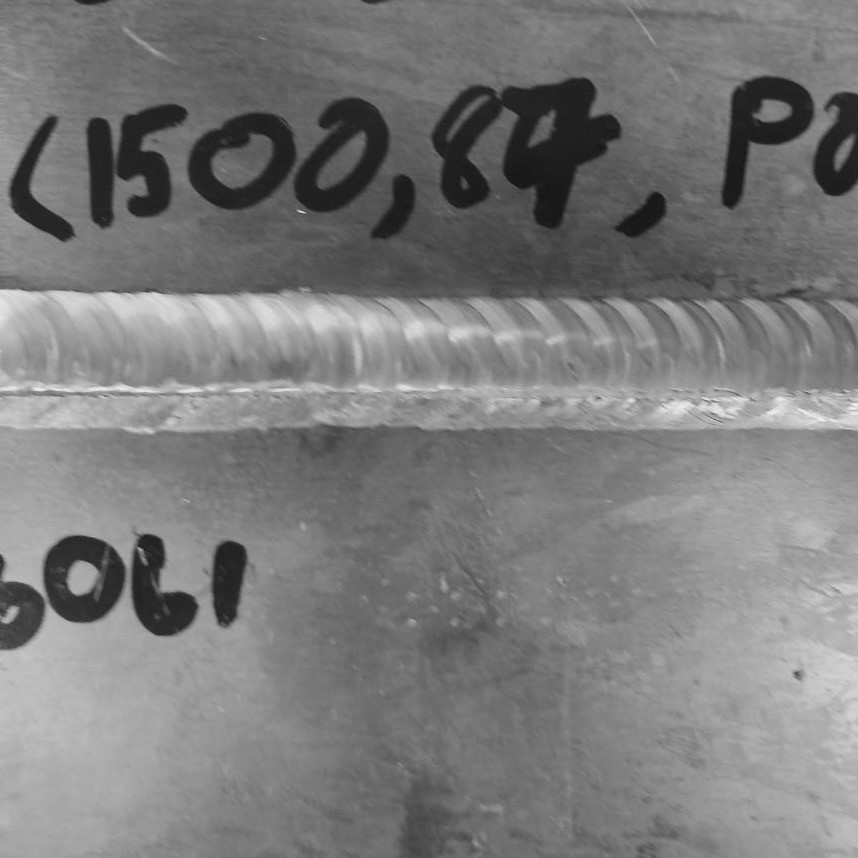 (1500, 84, PO
6061